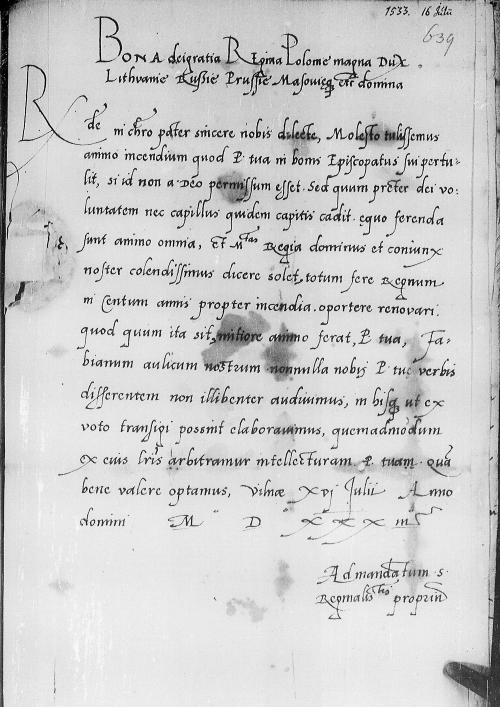 1533. 16 Julii
639
BONA dei gratia Regina Polonie magna Dux
Lithvanie Russie Prussie Masovieq etc domina
Rde in chro pater sincere nobis dilecte, Molesto tulissemus
animo incendium quod P. tua in bonis Episcopatus sui pertu-
lit, si id non a Deo permissum esset. Sed quum preter dei vo-
luntatem nec capillus quidem capitis cadit. equo ferenda
sunt animo omnia, et Mtas Regia dominus et coniunx
noster colendissimus dicere solet, totum fere Regnum
in Centum annis propter incendia. oportere renovari.
quod quum ita sit, mitiore animo ferat, P. tua, Fa-
bianum aulicum nostrum nonnulla nobis P. tue verbis
differentem non illibenter audivimus, in hisq ut ex
voto transigi possint elaboravimus, quemadmodum
ex eius lris arbitramur intellecturam P. tuam. Qua
bene valere optamus, Vilnæ xvj Julii Anno
domini M D XXX iii
Ad mandatum s.
Reginalis Mtis propriu